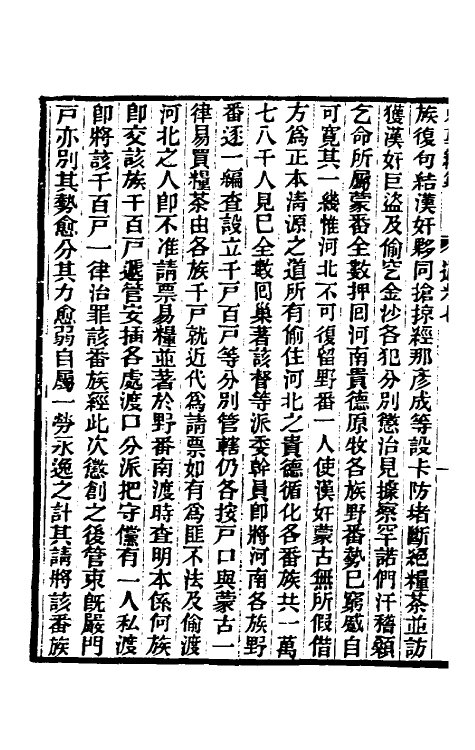 族復句結漢奸夥同搶掠經那彥成等設卡防堵斷絕糧茶並訪
獲漢奸巨盜及偷挖金沙各犯分別懲治見據察罕諾們汗稽顙
乞命所屬蒙番全數押回河南貴德原牧各族野番勢已窮蹙自
可寬其一幾惟河北不可復留野番一人使漢奸蒙古無所假借
方為正本清源之道所有偷住河北之貴德循化各番族共一萬
七八千人見已全數回巢著該督等派委幹員即將河南各族野
番逐一編查設立千戶百戶等分別管轄仍各按戶口與蒙古一
律易買糧茶由各族千戶就近代為請票如有為匪不法及偷渡
河北之人即不准請票易糧並著於野番南渡時查明本係何族
即交該族千百戶遞管安插各處渡口分派把守儻有一人私渡
即將該千百戶一律治罪該番族經此次懲創之後管束旣嚴門
戶亦別其勢愈分其力愈弱自屬一勞永逸之計其請將該番族